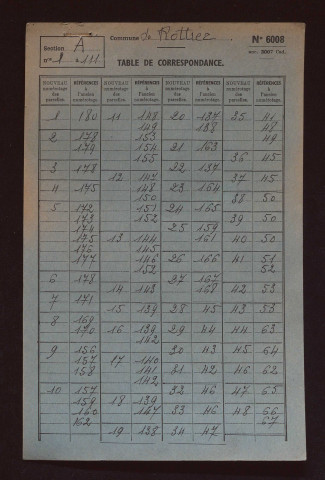 Section A
n° 1 à 111
Commune de Rottier
N° 6008
TABLE DE CORRESPONDANCE.
NOUVEAU numérotage des parcelles. RÉFÉRENCES à l'ancien numérotage. NOUVEAU numérotage des parcelles. RÉFÉRENCES à l'ancien numérotage. NOUVEAU numérotage des parcelles. RÉFÉRENCES à l'ancien numérotage. NOUVEAU numérotage des parcelles. RÉFÉRENCES à l'ancien numérotage.
1 180 11 148 20 137 35 41
149 138 48
2 178 153 49
179 154 21 163
155 36 45
3 178 22 137
12 147 37 45
4 175 148 23 164
150 38 50
5 172 151 24 165
173 152 39 50
174 25 159
175 13 144 161 40 50
176 145
177 146 26 166 41 51
152 52
6 178 27 167
14 143 168 42 53
7 171
15 139 28 45 43 53
8 169
170 16 139 29 44 44 63
142
9 156 30 43 45 64
157 17 140
158 141 31 42 46 62
142
10 157 32 46 47 65
159 18 139
160 147 33 46 48 66
162 67
19 138 34 47